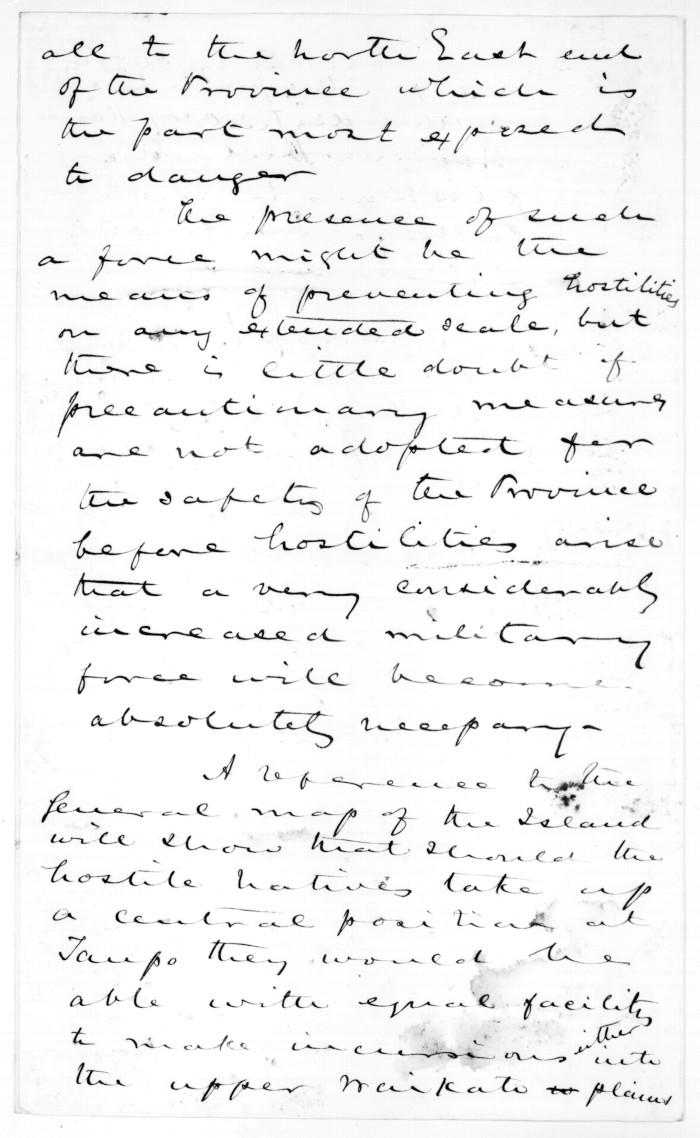 all to the north East end
of the Province which is
the part most exposed
to danger
The presence of such
a force might be the
means of preventing hostilities
on any extended scale, but
there is little doubt if
precautionary measures
are not adopted for
the safety of the Province
before hostilities arise
that a very considerably
increased military
force will become
absolutely necessary -
A reference to the
General map of the Island
will show that should the
hostile natives take up
a central position at
Taupo they would be
able with equal facility
to make incursions either into
the upper Waikato plains